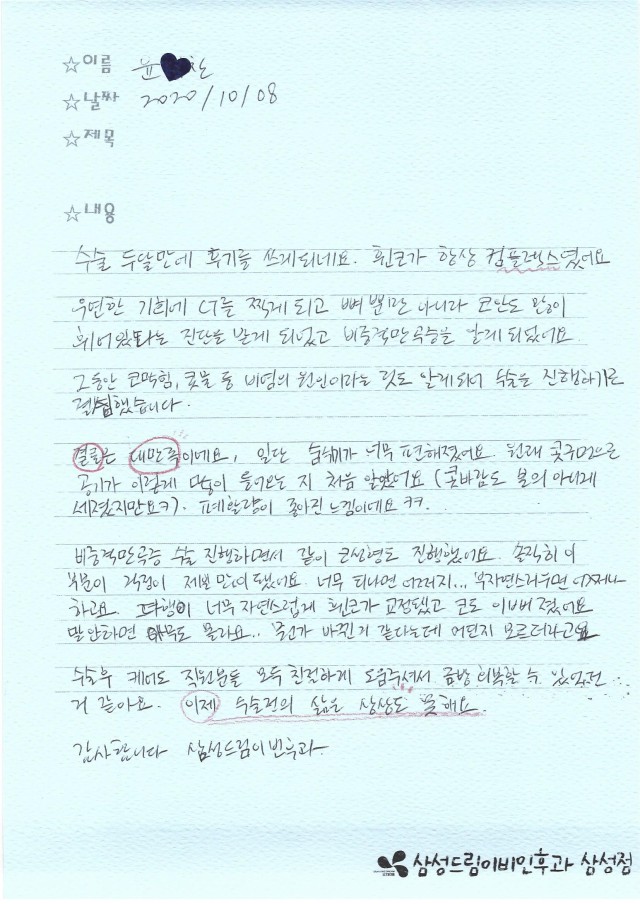 ☆이름 윤♥찬
☆날짜 2020/10/08
☆제목
☆내용
수술 두달만에 후기를 쓰게되네요. 휜코가 항상 컴플렉스였어요
우연한 기회에 CT를 찍게 되고 뼈 뿐만 아니라 코안도 많이
휘어있다는 진단을 받게 되었고 비중격만곡증을 알게 되었어요.
그동안 코막힘, 콧물 등 비염의 원인이라는 것도 알게되어 수술을 진행하기로
결심했습니다.
결론은 대만족이에요. 일단 숨쉬기가 너무 편해졌어요. 원래 콧구멍으로
공기가 이렇게 많이 들어오는 지 처음 알았어요 (콧바람도 본의 아니게
세졌지만요ㅋ). 폐활량이 좋아진 느낌이네요 ㅋㅋ.
비중격만곡증 수술 진행하면서 같이 코성형도 진행했어요. 솔직히 이
부분이 걱정이 제일 많이 됐어요. 너무 티나면 어쩌지... 부자연스러우면 어쩌나
하고요. 다행이 너무 자연스럽게 휜코가 교정됐고 코도 이뻐졌어요
말안하면 아무도 몰라요.. 뭔가 바뀐거 같다는데 어딘지 모르더라고요
수술후 케어도 직원분들 모두 친절하게 도움주셔서 금방 회복할 수 있었던
거 같아요. 이제 수술전의 삶은 상상도 못해요.
감사합니다 삼성드림이빈후과
삼성드림이비인후과 삼성점